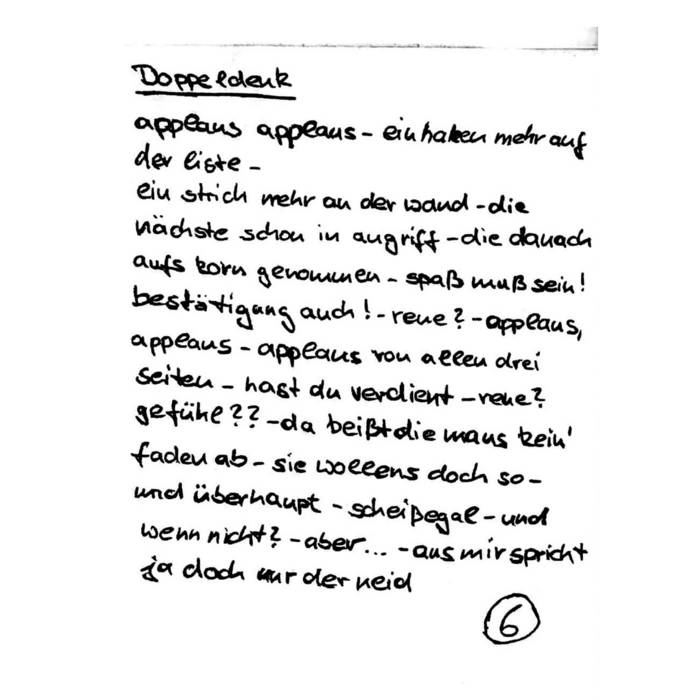 Doppeldenk
applaus applaus - ein haken mehr auf
der liste -
ein strich mehr an der wand - die
nächste schon in angriff - die danach
aufs korn genommen - spaß muß sein!
bestätigung auch! - reue? - applaus,
applaus - applaus von allen drei
seiten - hast du verdient - reue?
gefühl?? - da beißt die maus kein'
faden ab - sie wollens doch so -
und überhaupt - scheißegal - und
wenn nicht? - aber... - aus mir spricht
ja doch nur der neid
6